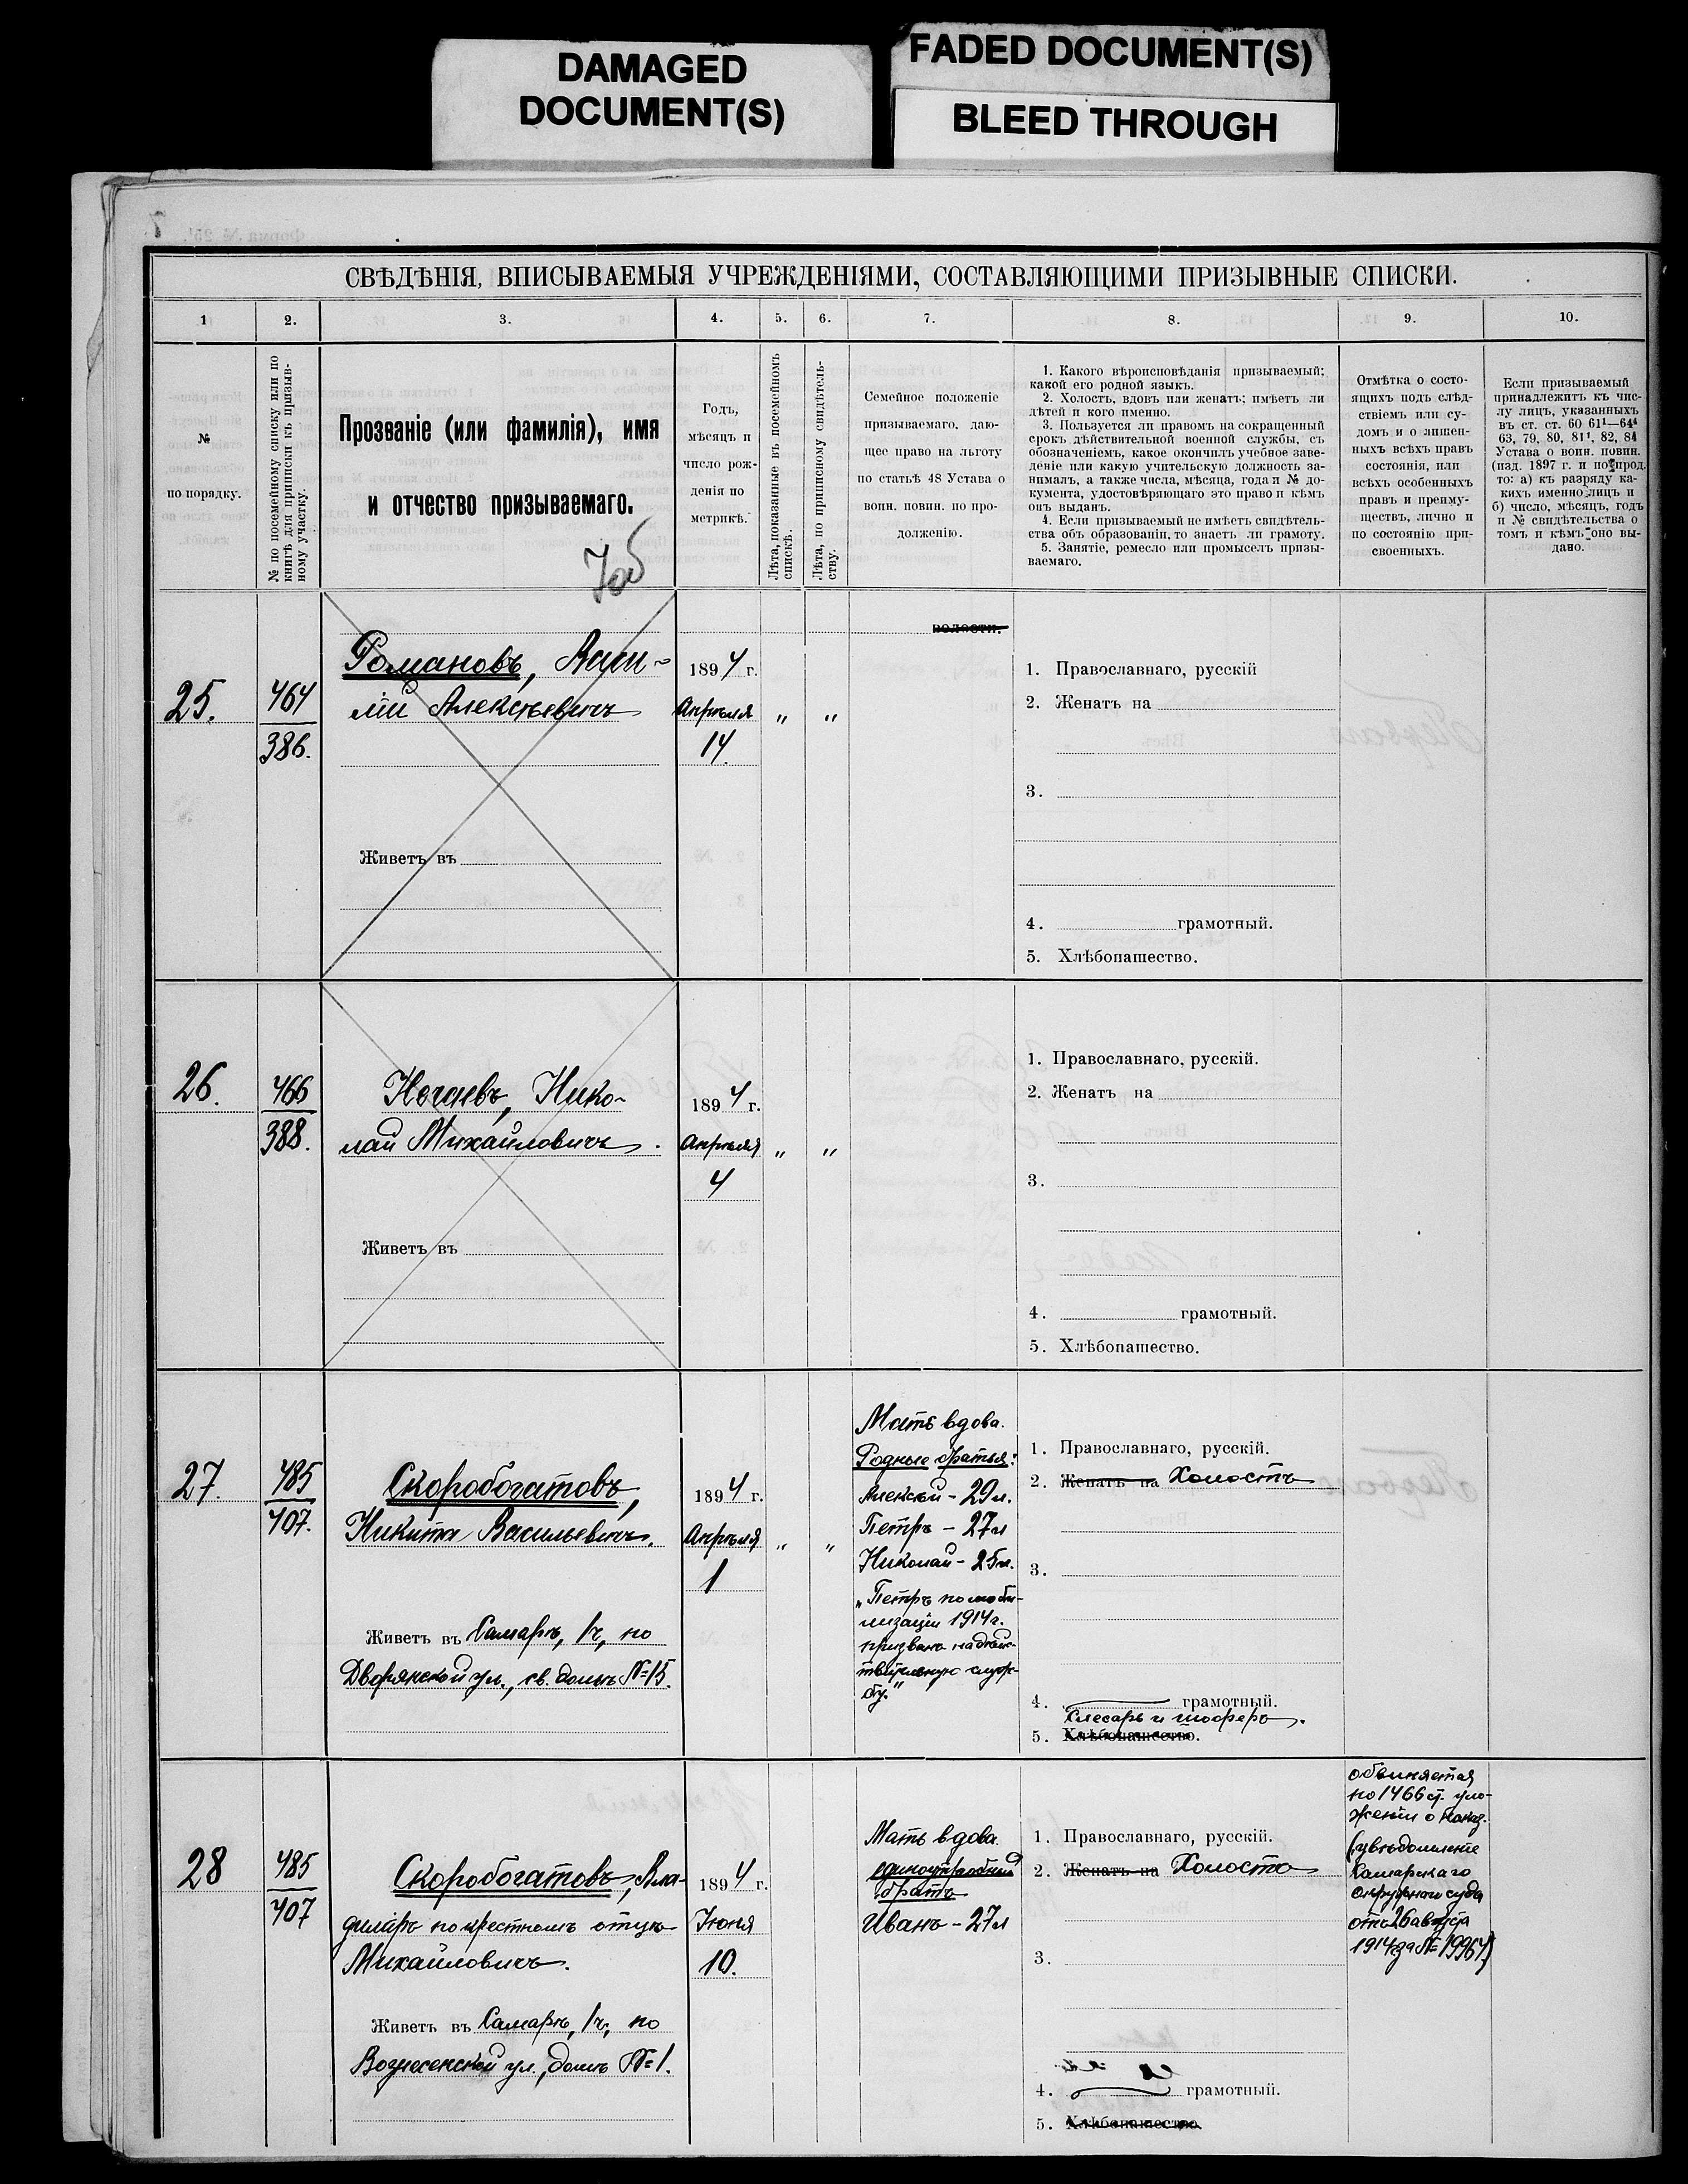 DAMAGED
DOCUMENT(S)
FADED DOCUMENT(S)
BLEED THROUGH
СВѢДѢНІЯ, ВПИСЫВАЕМЫЯ УЧРЕЖДЕНІЯМИ, СОСТАВЛЯЮЩИМИ ПРИЗЫВНЫЕ СПИСКИ.
1 2. 3. 4. 5. 6. 7. 8. 9. 10.
№
по порядку.
№ по посемейному списку или по
книгѣ для приписки къ призыв-
ному участку.
Прозваніе (или фамилія), имя
и отчество призываемаго.
Годъ,
мѣсяцъ и
число рож-
денія по
метрикѣ.
Лѣта, показанные въ посемейномъ
спискѣ.
Лѣта, по приписному свидѣтель-
ству.
Семейное положеніе
призываемаго, даю-
щее право на льготу
по статьѣ 48 Устава о
воин. повин. по про-
долженію.
1. Какого вѣроисповѣданія призываемый;
какой его родной языкъ.
2. Холостъ, вдовъ или женатъ; имѣетъ ли
дѣтей и кого именно.
3. Пользуется ли правомъ на сокращенный
срокъ дѣйствительной военной службы, съ
обозначеніемъ, какое окончилъ учебное заве-
деніе или какую учительскую должность за-
нималъ, а также числа, мѣсяца, года и № до-
кумента, удостовѣряющаго это право и кѣмъ
онъ выданъ.
4. Если призываемый не имѣетъ свидѣтель-
ства объ образованіи, то знаетъ ли грамоту.
5. Занятіе, ремесло или промыселъ призы-
ваемаго.
Отмѣтка о состо-
ящихъ подъ слѣд-
ствіемъ или су-
домъ и о лишен-
ныхъ всѣхъ правъ
состоянія, или
всѣхъ особенныхъ
правъ и преиму-
ществъ, лично и
по состоянію при-
своенныхъ.
Если призываемый
принадлежитъ къ чис-
лу лицъ, указанныхъ
въ ст. ст. 60 61¹—64⁴
63, 79, 80, 81¹, 82, 84
Устава о воин. повин.
(изд. 1897 г. и по прод.
то: а) къ разряду ка-
кихъ именно лицъ и
б) число, мѣсяцъ, годъ
и № свидѣтельства о
томъ и кѣмъ оно вы-
дано.
25.
464
386.
Романовъ, Васи-
лій Алексѣевичъ
Живетъ въ
1894 г.
Апрѣля
14.
" "
волости.
1. Православнаго, русскій
2. Женатъ на
3.
4. грамотный.
5. Хлѣбопашество.
26.
466
388.
Ногаевъ, Нико-
лай Михайловичъ.
Живетъ въ
1894 г.
Апрѣля
4
" "
1. Православнаго, русскій.
2. Женатъ на
3.
4. грамотный.
5. Хлѣбопашество.
27.
485
407.
Скоробогатовъ,
Никита Васильевичъ.
Живетъ въ Самарѣ, 1 ч, по
Дворянской ул., св. домъ №15.
1894 г.
Апрѣля
1
" "
Мать вдова.
Родные братья:
Алексѣй - 29 л.
Петръ - 27 л
Николай - 25 л.
"Петръ по моби-
лизаціи 1914 г.
призванъ на дѣй-
ствительную служ-
бу."
1. Православнаго, русскій.
2. Женатъ на Холостъ
3.
4. грамотный.
Слесарь и шоферъ.
5. Хлѣбопашество.
28
485
407
Скоробогатовъ, Вла-
диміръ по крестномъ отцѣ
Михайловичъ.
Живетъ въ Самарѣ, 1 ч, по
Вознесенской ул., домъ №1.
1894 г.
Іюня
10.
Мать вдова.
единоутробный
братъ
Иванъ - 27 л
1. Православнаго, русскій.
2. Женатъ на Холостъ
3.
4. грамотный.
5. Хлѣбопашество
обвиняется
по 1466 ст. уло-
женія о наказ.
(увѣдомленіе
Самарскаго
окружнаго суда
отъ 26 августа
1914 за № 19967)